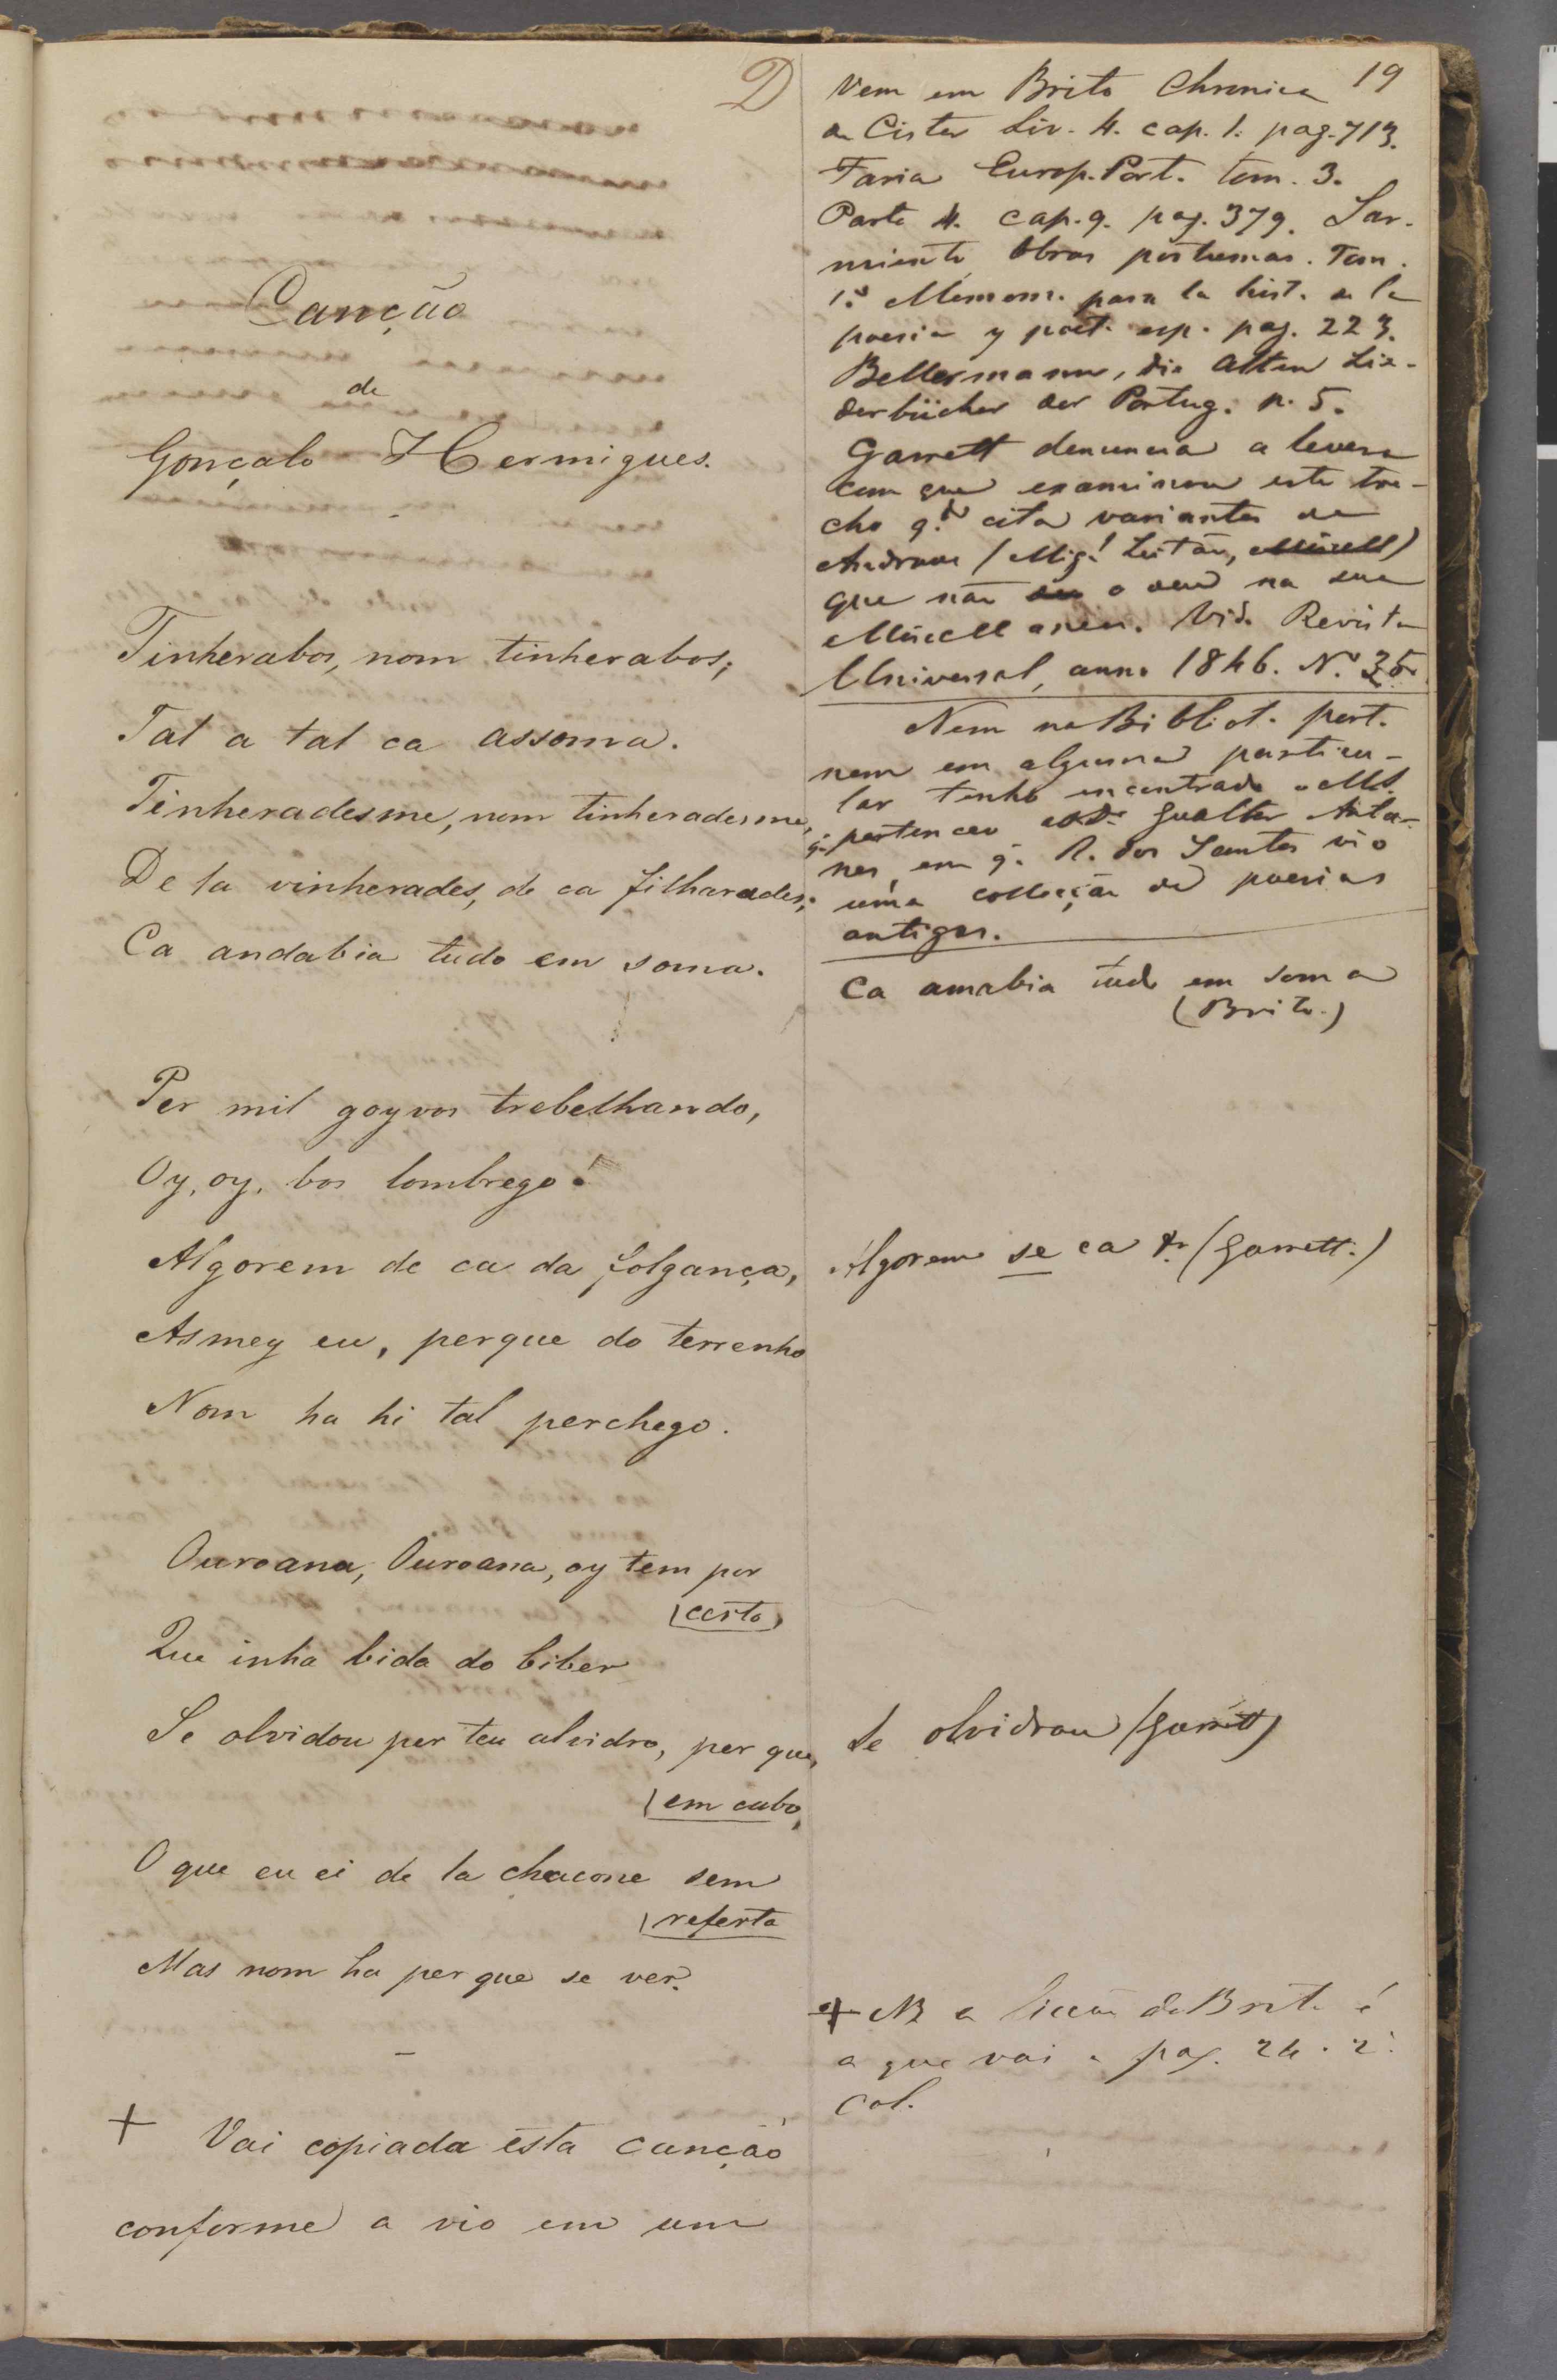 D
19
Canção
de
Gonçalo Hermigues.
Tinherabos, nom tinherabos;
Tal a tal ca assoma.
Tinheradesme, nom tinheradesme,
De la vinherades, de ca filharades;
Ca andabia tudo em soma.
Per mil goyvos trebelhando,
Oy, oy, bos lombrego!
Algorem de ca da folgança,
Asmey eu, perque do terrenho
Nom ha hi tal perchego.
Ouroana, Ouroana, oy tem por
certo,
Que inha bida do biber
Se olvidou per teu alvidro, per que,
em cabo,
O que eu ei de la chacone sem
referta
Mas nom ha per que se ver.
+ Vai copiada esta canção
conforme a vio em um
Vem em Brito Chronica
de Cister Liv. 4. cap. 1. pag. 713.
Faria Europ. Port. tom. 3.
Parte 4. cap. 9. pag. 379. Sar-
miento Obras posthumas. Tom.
1.º Memor. para la hist. de la
poesia y poet. esp. pag. 223.
Bellermann, die alten Lie-
derbücher der Portug. p. 5.
Garrett denuncia a leveza
com que examinou este tre-
cho q.do cita variantes de
Andrade (Mig.l Leitão,
que não o deu na sua
Miscellanea. Vid. Revista
Universal, anno 1846. N.º 35.
Nem na Bibliot. port.
nem em alguma particu-
lar tenho encontrado o MS.
q. pertenceu Gualter Antu-
nes, em q. R. dos Santos vio
uma collecção de poesias
antigas.
Ca amabia tudo em soma
(Brito.)
Algorem se ca &. (Garrett.)
Se olvidrou (Garrett)
+ NB a licção de Brito é
a que vai a pag. 24. 2.ª
col.